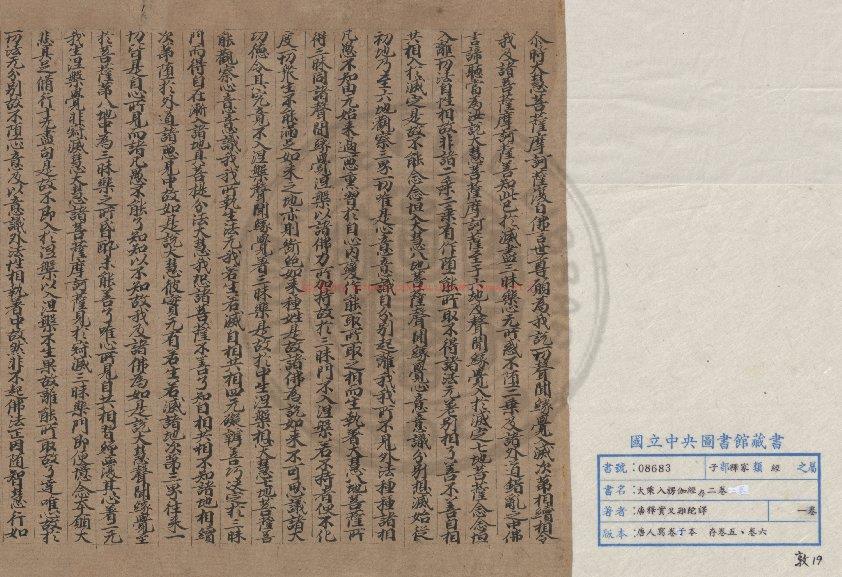 尒時大慧菩薩摩訶薩復白佛言世尊願為我說一切聲聞緣覺入滅次第相續相令
我及諸菩薩摩訶薩善知此已於滅盡三昧樂心无所惑不墮二乘及諸外道錯亂之中佛
言諦聽當為汝說大慧菩薩摩訶薩至于六地及聲聞緣覺入於滅定七地菩薩念念恒
入離一切法自性相故非諸二乘二乘有作墮能所取不得諸法无差別相了善不善自相
共相入於滅定是故不能念念恒入大慧八地菩薩聲聞緣覺心意意識分別想滅始從
初地乃至六地觀察三界一切唯是心意意識自分別起離我我所不見外法種種諸相
凡愚不知由无始來過惡熏習於自心內變作能取所取之相而生執著大慧八地菩薩所
得三昧同諸聲聞緣覺涅槃以諸佛力所加持故於三昧門不入涅槃若不持者便不化
度一切衆生不能滿足如來之地亦則斷絕如來種姓是故諸佛為說如來不可思議諸大
功德令其究竟不入涅槃聲聞緣覺著三昧樂是故於中生涅槃想大慧七地菩薩善
能觀察心意意識我我所執生法无我若生若滅自相共相四无礙辯善巧決定於三昧
門而得自在漸入諸地具菩提分法大慧我恐諸菩薩不善了知自相共相不知諸地相續
次第墮於外道諸惡見中故如是說大慧彼實无有若生若滅諸地次第三界往來一
切皆是自心所見而諸凡愚不能了知以不知故我及諸佛為如是說大慧聲聞緣覺至
於菩薩第八地中為三昧樂之所昏醉未能善了唯心所見自共相習纏覆其心著二无
我生涅槃覺非寂滅慧大慧諸菩薩摩訶薩見於寂滅三昧樂門即便憶念本願大
悲具足修行十无盡句是故不即入於涅槃以入涅槃不生果故離能所取故了達唯心故於
一切法无分別故不墮心意及以意識外法性相執著中故然非不起佛法正因隨智慧行如
國立中央圖書館藏書
書號:08683 子部釋家類 經 之屬
書名:大乘入楞伽經存二卷
著者:唐釋實叉難陀譯 一卷
版本:唐人寫卷子本 存卷五、卷六
敦19